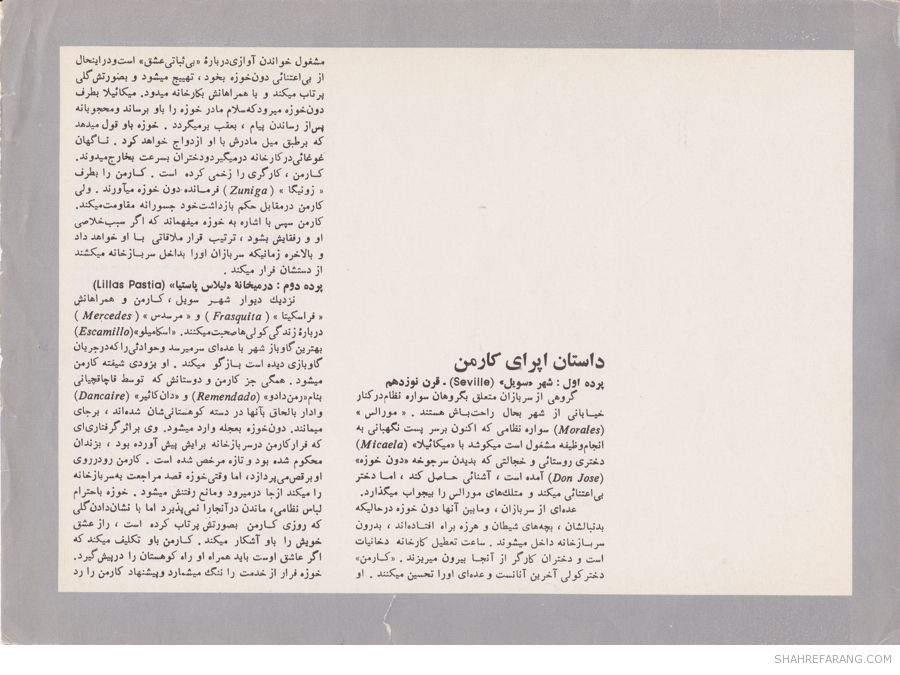 داستان اپرای کارمن
پرده اول : شهر «سویل» (Seville) ـ قرن نوزدهم
گروهی از سربازان متعلق بگروهان سواره نظام درکنار
خیابانی از شهر بحال راحت‌باش هستند . « مورالس »
(Morales) سواره نظامی که اکنون برسر پست نگهبانی به
انجام‌وظیفه مشغول است میکوشد با «میکائیلا» (Micaela)
دختری روستائی و خجالتی که بدیدن سرجوخه «دون خوزه»
(Don Jose) آمده است ، آشنائی حاصل کند ، امـا دختر
بی‌اعتنائی میکند و متلک‌های مورالس را بیجواب میگذارد.
عده‌ای از سربازان ، ومابین آنها دون خوزه درحالیکه
بدنبالشان ، بچه‌های شیطان و هرزه براه افتـاده‌اند ، بدرون
سربـازخانه داخل میشوند . ساعت تعطیل کارخانه دخانیات
است و دختران کارگر از آنجـا بیرون میریزند . «کـارمن»
دخترکولی آخرین آنانست و عده‌ای اورا تحسین میکنند . او
مشغول خواندن آوازی‌دربارهٔ «بی‌ثباتی‌عشق» است‌ودراینحال
از بی‌اعتنائی دون‌خوزه بخود ، تهییج میشود و بصورتش‌گلی
پرتاب میکند و با همراهانش بکارخانه میدود. میکائیلا بطرف
دون‌خوزه میرودکه‌سلام مادر خوزه را باو برساند ومحجوبانه
پس‌از رساندن پیام ، بعقب برمیگردد . خوزه باو قول میدهد
که برطبق میل مادرش با او ازدواج خواهد کرد . نـاگهان
غوغائی‌درکارخانه درمیگیردودختران بسرعت بخارج‌میدوند.
کـارمن ، کارگری را زخمی کرده است . کـارمن را بطرف
« زونیگا » (Zuniga) فرمـانده دون خوزه میآورند . ولی
کارمن درمقابل حکم بازداشت‌خود جسورانه مقاومت‌میکند.
کارمن سپس با اشاره به خوزه میفهماند که اگر سبب‌خلاصی
او و رفقایش بشود ، ترتیب قرار ملاقاتی بـا او خواهد داد
و بالاخره زمانیکه سربازان اورا بداخل سربـازخانه میکشند
از دستشان فرار میکند .
پرده دوم : درمیخانهٔ «لیلاس پاستیا» (Lillas Pastia)
نزدیك دیوار شهـر سویل ، کـارمن و همراهانش
« فراسکیتا » (Frasquita) و « مرسدس » (Mercedes)
دربارهٔ زندگی‌کولی‌هاصحبت‌میکنند. «اسکامیلو»(Escamillo)
بهترین‌گاوباز شهر با عده‌ای سرمیرسد وحوادثی‌راکه‌درجریان
گاوبازی دیده است بـازگو میکند . او بزودی شیفته کارمن
میشود . همگی جز کارمن و دوستانش که توسط قاچاقچیانی
بنام«رمن‌دادو» (Remendado) و «دان‌کائیر» (Dancaire)
وادار بالحاق بآنها در دسته کوهستانی‌شان شده‌اند ، برجای
میمانند. دون‌خوزه بعجله وارد میشود. وی براثرگرفتاری‌ای
که فرارکارمن درسربازخانه برایش پیش آورده بود ، بزندان
محکوم شده بود وتازه مرخص شده است . کارمن رودرروی
اوبرقص‌می‌پردازد، اما وقتی‌خوزه قصد مراجعت به‌سربازخانه
را میکند ازجا درمیرود ومانع رفتنش میشود . خوزه باحترام
لباس نظامی، ماندن درآنجارا نمی‌پذیرد اما با نشان‌دادن‌گلی
که روزی کـارمن بصورتش پرتاب کرده است ، راز عشق
خویش را باو آشکار میکند . کـارمن باو تکلیف میکند که
اگر عاشق اوست باید همراه او راه کوهستان را درپیش‌گیرد.
خوزه فرار از خدمت را ننگ میشمارد وپیشنهاد کارمن را رد
SHAHREFARANG.COM